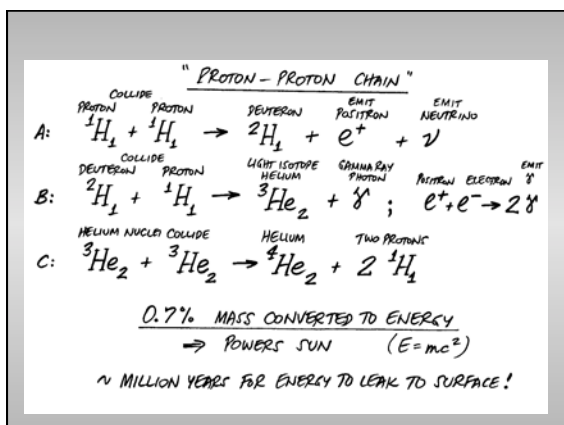 "PROTON-PROTON CHAIN"
COLLIDE
PROTON PROTON DEUTERON EMIT POSITRON EMIT NEUTRINO
A: ¹H₁ + ¹H₁ → ²H₁ + e⁺ + ν
COLLIDE
DEUTERON PROTON LIGHT ISOTOPE HELIUM GAMMA RAY PHOTON POSITRON ELECTRON EMIT γ
B: ²H₁ + ¹H₁ → ³He₂ + γ ; e⁺ + e⁻ → 2γ
HELIUM NUCLEI COLLIDE HELIUM TWO PROTONS
C: ³He₂ + ³He₂ → ⁴He₂ + 2 ¹H₁
0.7% MASS CONVERTED TO ENERGY
⇒ POWERS SUN (E=mc²)
~ MILLION YEARS FOR ENERGY TO LEAK TO SURFACE!